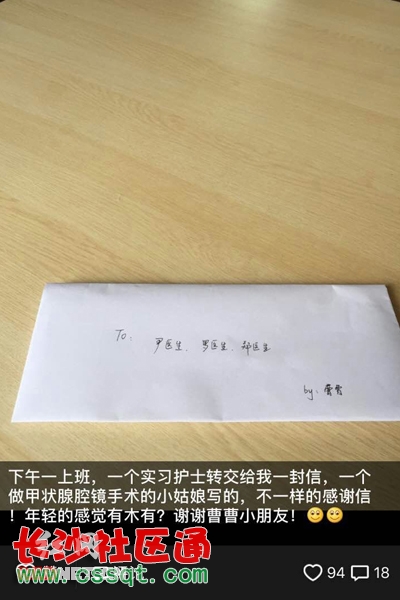 To:
尹医生、罗医生、郑医生
by: 曹曹
下午一上班，一个实习护士转交给我一封信，一个
做甲状腺腔镜手术的小姑娘写的，不一样的感谢信
！年轻的感觉有木有？谢谢曹曹小朋友！
长沙社区通
www.cssqt.com
94 18